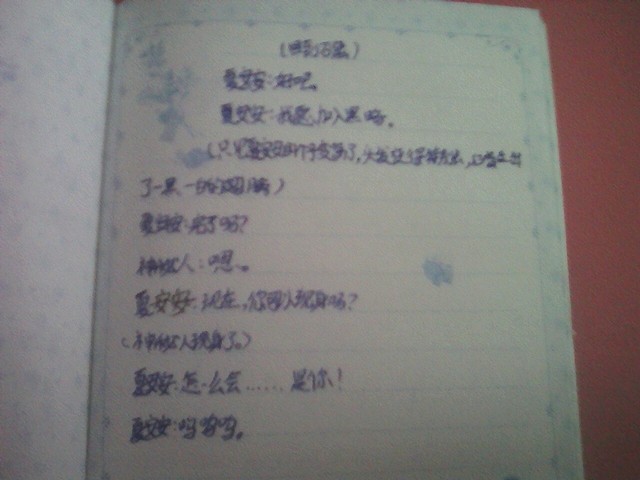 夏安安:好吧。
夏安安:我愿加入黑暗。
(只见夏安安的个子变高了,头发
了一黑一白的翅膀)
夏安安:完了吗?
神秘人:嗯。
夏安安:现在,你可以现身吗?
(神秘人现身了。)
夏安安:怎么会……是你!
夏安安:呜呜呜。